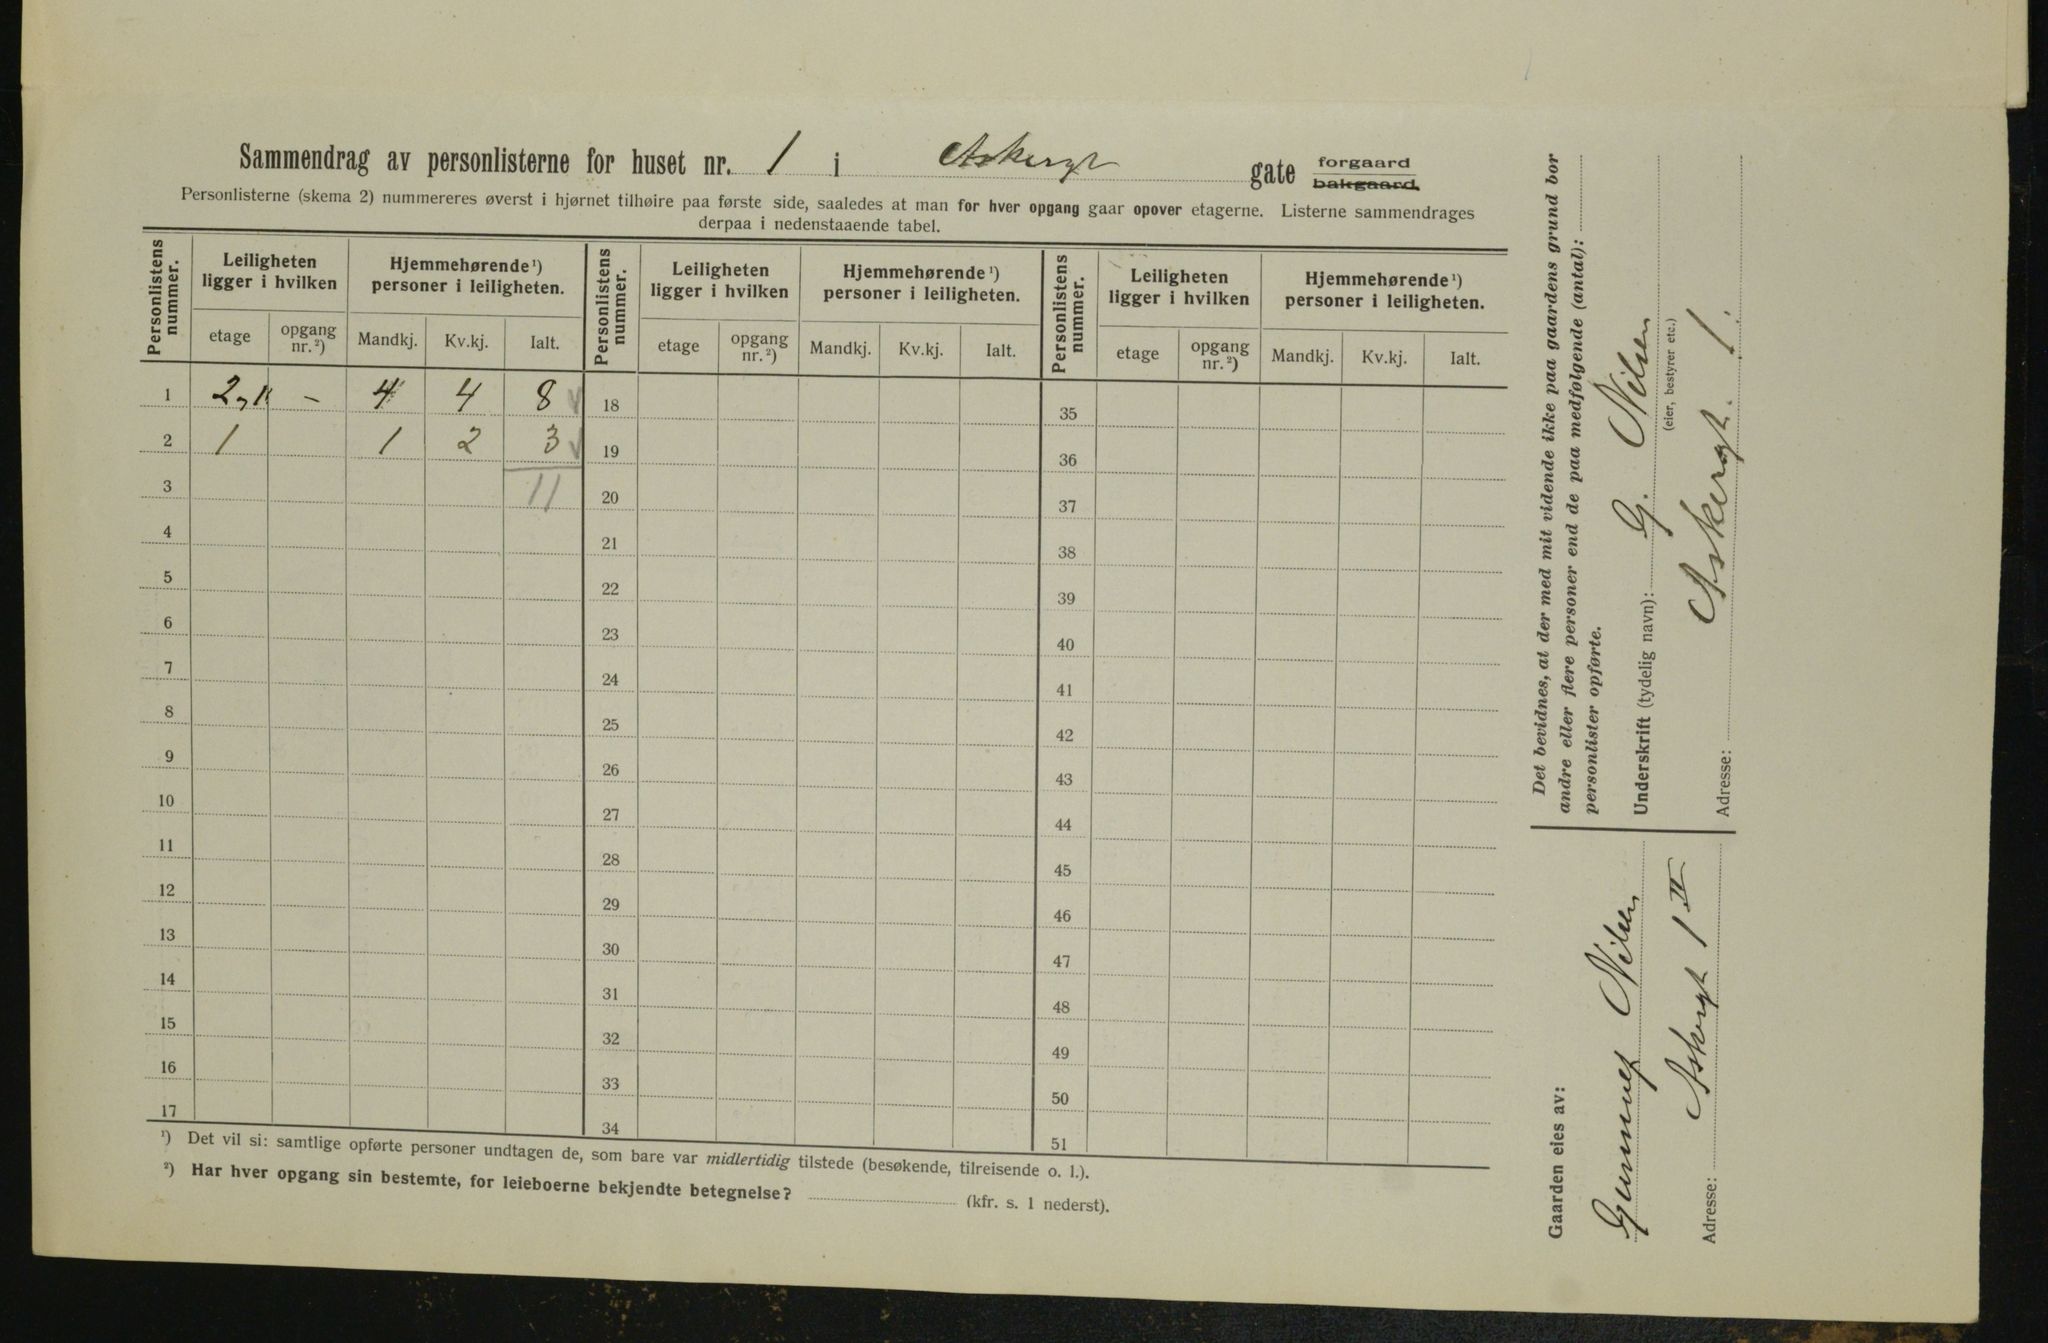 Sammendrag av personlisterne for huset nr. 1 i Askergt gate forgaard bakgaard.
Personlisterne (skema 2) nummereres øverst i hjørnet tilhøire paa første side, saaledes at man for hver opgang gaar opover etagerne. Listerne sammendrages
derpaa i nedenstaaende tabel.
Personlistens nummer. Leiligheten ligger i hvilken Hjemmehørende¹) personer i leiligheten. Personlistens nummer. Leiligheten ligger i hvilken Hjemmehørende¹) personer i leiligheten. Personlistens nummer. Leiligheten ligger i hvilken Hjemmehørende¹) personer i leiligheten.
etage opgang nr.²) Mandkj. Kv.kj. Ialt. etage opgang nr.²) Mandkj. Kv.kj. Ialt. etage opgang nr.²) Mandkj. Kv.kj. Ialt.
1 - 4 4 8 18 35
2 1 1 2 3 19 36
3 11 20 37
4 21 38
5 22 39
6 23 40
7 24 41
8 25 42
9 26 43
10 27 44
11 28 45
12 29 46
13 30 47
14 31 48
15 32 49
16 33 50
17 34 51
¹) Det vil si: samtlige opførte personer undtagen de, som bare var midlertidig tilstede (besøkende, tilreisende o. l.).
²) Har hver opgang sin bestemte, for leieboerne bekjendte betegnelse? (kfr. s. 1 nederst).
Det bevidnes, at der med mit vidende ikke paa gaardens grund bor
andre eller flere personer end de paa medfølgende (antal):
personlister opførte.
Underskrift (tydelig navn): G. Nilsen
(eier, bestyrer etc.)
Adresse: Askergt. 1.
Gaarden eies av:
Nilsen
Adresse: Askergt 1 II